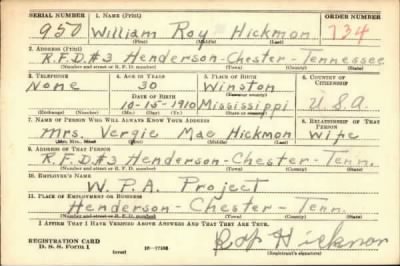 SERIAL NUMBER 1. NAME (Print) ORDER NUMBER
950 William Roy Hickmon 734
(First) (Middle) (Last)
2. ADDRESS (Print)
R.F.D.#3 Henderson-Chester-Tennessee
(Number and street or R. F. D. number) (Town) (County) (State)
3. TELEPHONE 4. AGE IN YEARS 5. PLACE OF BIRTH 6. COUNTRY OF CITIZENSHIP
None 30 Winston
DATE OF BIRTH (Town or county)
10-15-1910 Mississippi U.S.A.
(Exchange) (Number) (Mo.) (Day) (Yr.) (State or country)
7. NAME OF PERSON WHO WILL ALWAYS KNOW YOUR ADDRESS 8. RELATIONSHIP OF THAT PERSON
Mrs. Vergie Mae Hickmon Wife
(Mr., Mrs., Miss) (First) (Middle) (Last)
9. ADDRESS OF THAT PERSON
R.F.D.#3 Henderson-Chester-Tenn.
(Number and street or R. F. D. number) (Town) (County) (State)
10. EMPLOYER'S NAME
W. P. A. Project
11. PLACE OF EMPLOYMENT OR BUSINESS
Henderson-Chester-Tenn.
(Number and street or R. F. D. number) (Town) (County) (State)
I AFFIRM THAT I HAVE VERIFIED ABOVE ANSWERS AND THAT THEY ARE TRUE.
REGISTRATION CARD
D. S. S. Form 1 (over) Hickmon
(Registrant's signature)